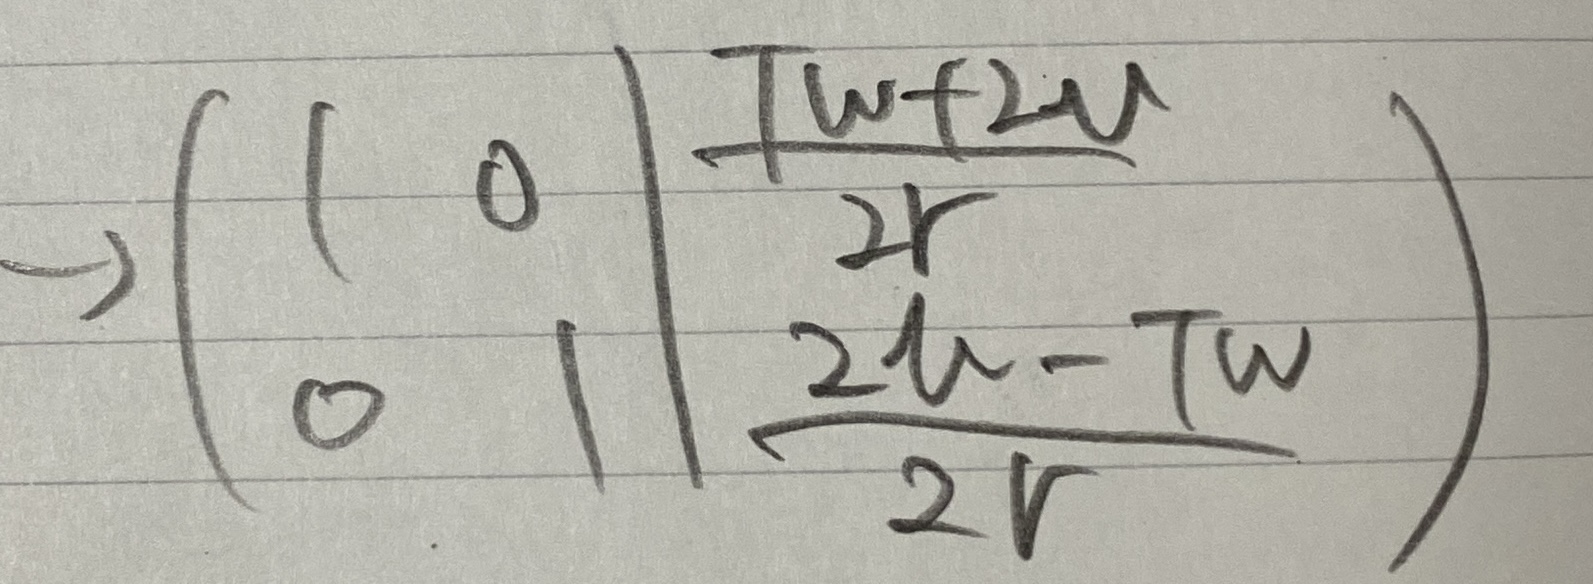 → ( 1 0 | Tw+2v / 2r
0 1 | 2v - Tw / 2r )